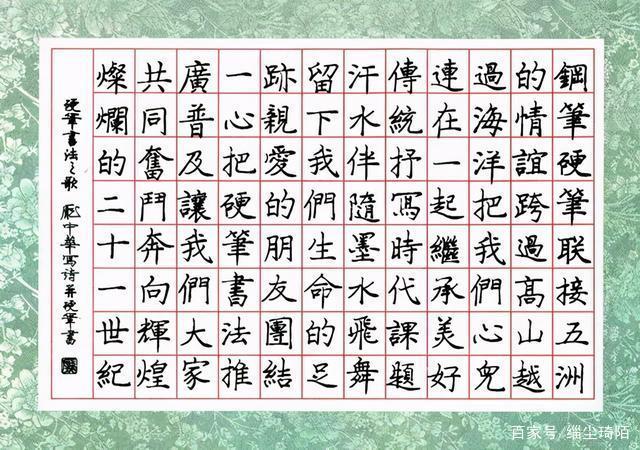 鋼筆硬筆聯接五洲
的情誼跨過高山越
過海洋把我們心兒
連在一起繼承美好
傳統抒寫時代課題
汗水伴隨墨水飛舞
留下我們生命的足
跡親愛的朋友團結
一心把硬筆書法推
廣普及讓我們大家
共同奮鬥奔向輝煌
燦爛的二十一世紀
硬筆書法之歌 龐中華寫詩并硬筆書
百家号/缁尘琦陌